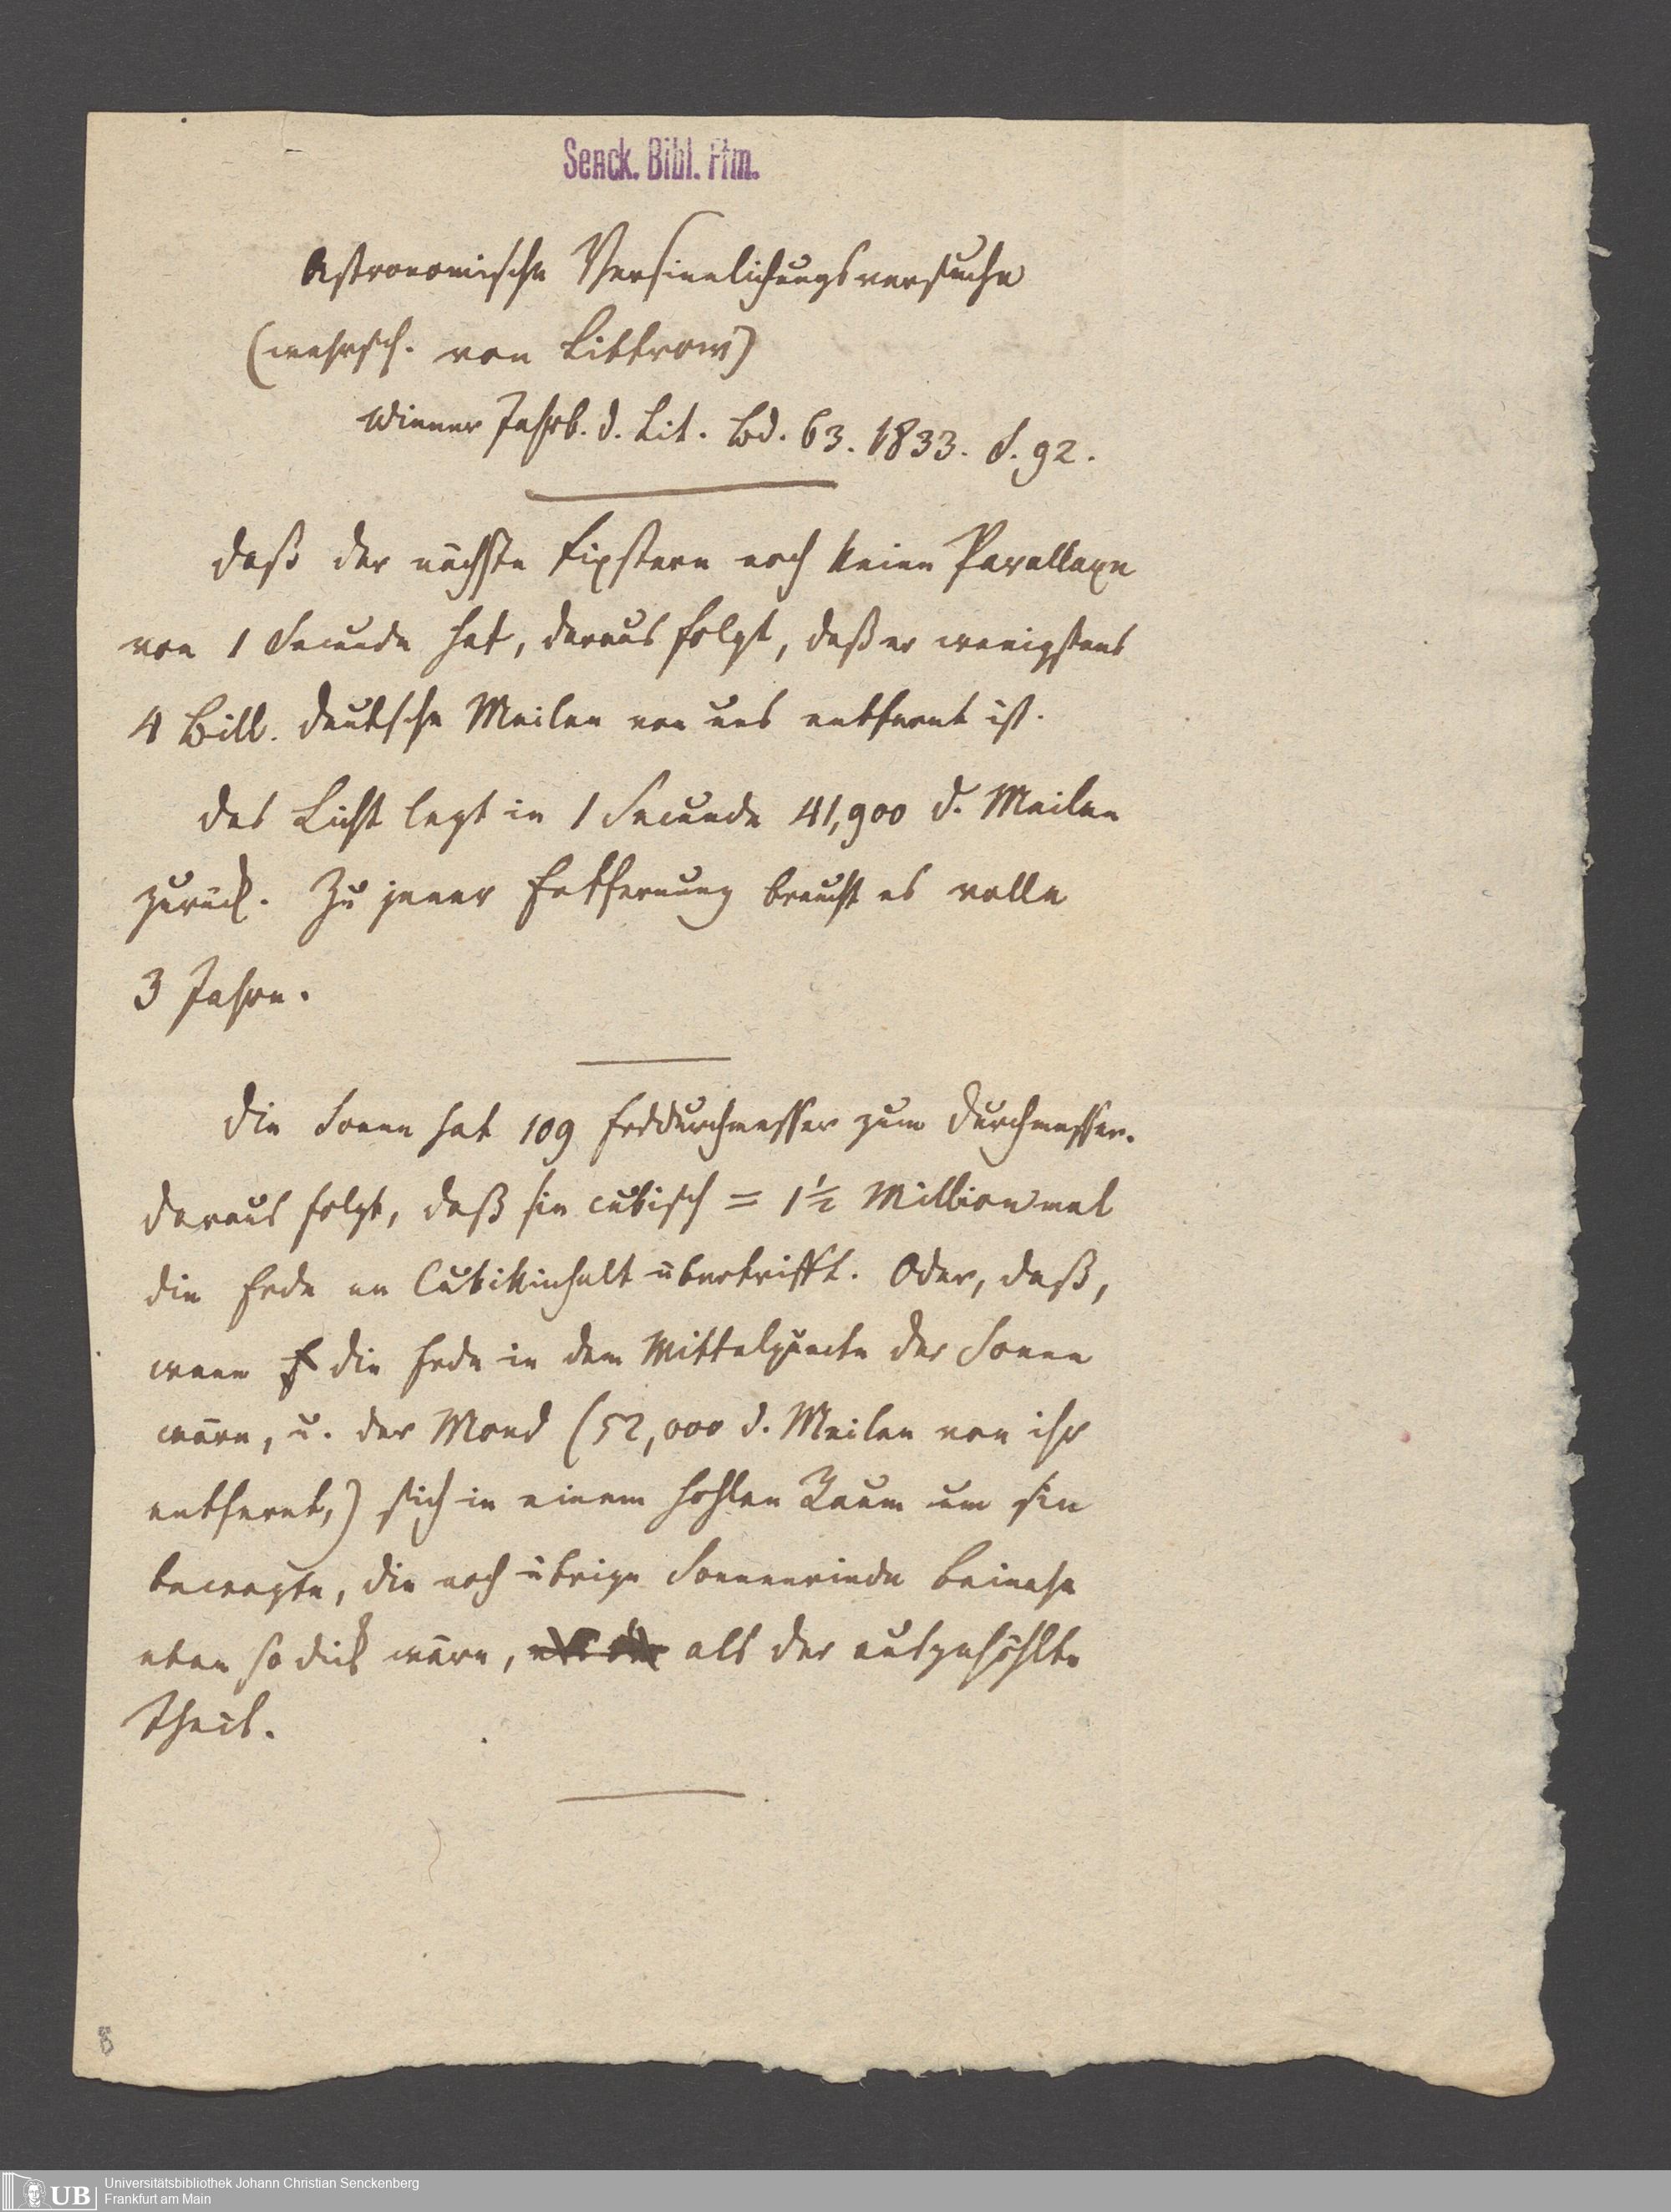 Senck. Bibl. Ffm.
Astronomische Versinnlichungsversuche
(wahrsch. von Littrow)
Wiener Jahrb. d. Lit. Bd. 63. 1833. S. 92.
Daß der nächste Fixstern noch keine Parallaxe
von 1 Secunde hat, daraus folgt, daß er wenigstens
4 Bill. deutsche Meilen von uns entfernt ist.
Das Licht legt in 1 Secunde 41,900 d. Meilen
zurück. Zu jener Entfernung braucht es volle
3 Jahre.
Die Sonne hat 109 Erddurchmesser zum Durchmesser.
Daraus folgt, daß sie cubisch = 1 1/2 Millionmal
die Erde an Cubikinhalt übertrifft. Oder, daß,
wenn die Erde in dem Mittelpuncte der Sonne
wäre, u. der Mond (52,000 d. Meilen von ihr
entfernt,) sich in einem hohlen Raum um sie
bewegte, die noch übrige Sonnenrinde beinahe
eben so dick wäre, als der ausgehöhlte
Theil.
8
UB
Universitätsbibliothek Johann Christian Senckenberg
Frankfurt am Main